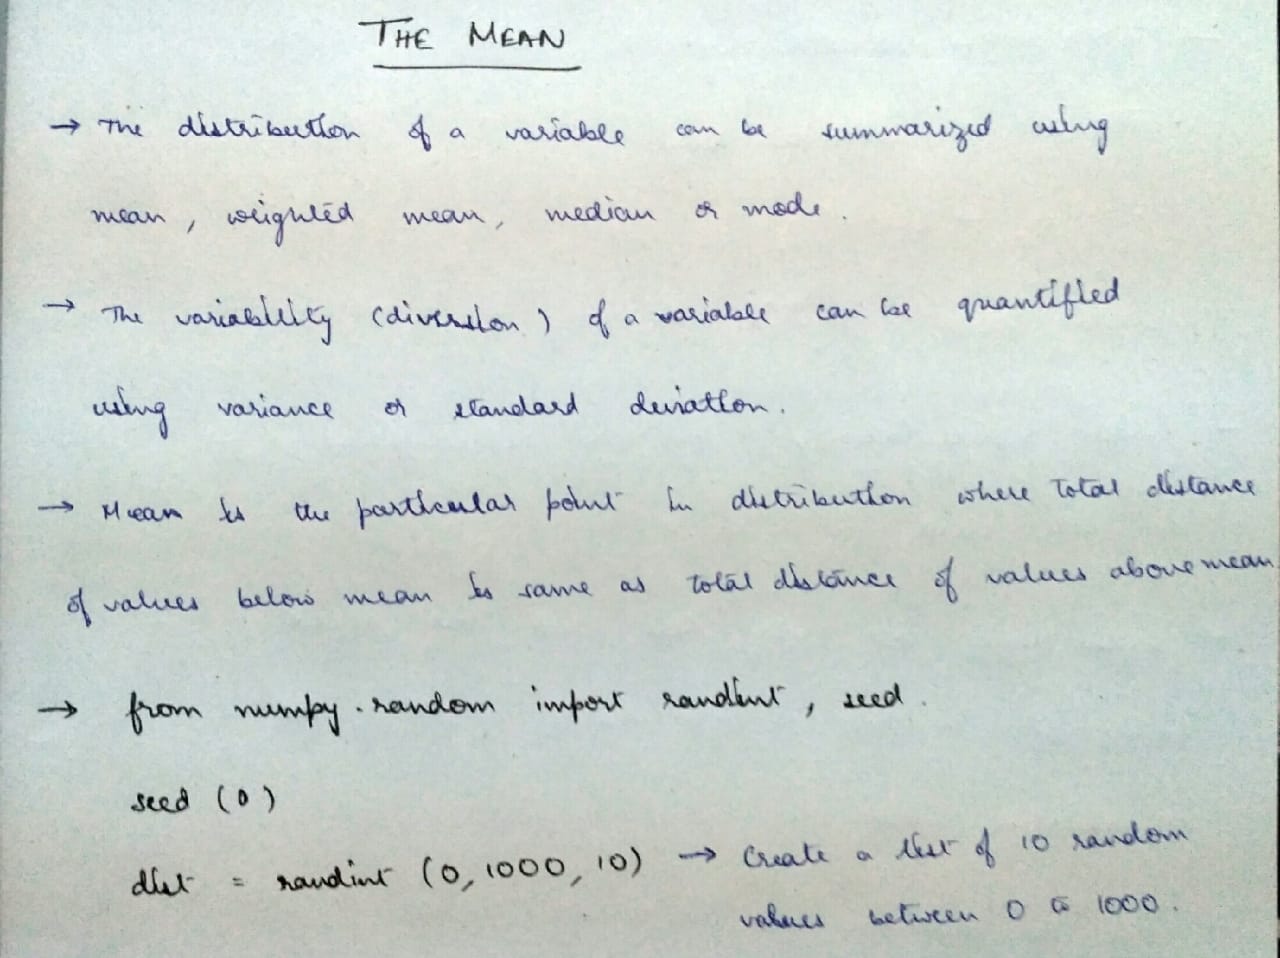 THE MEAN
→ The distribution of a variable can be summarized using
mean, weighted mean, median or mode.
→ The variability (diversion) of a variable can be quantified
using variance or standard deviation.
→ Mean is the particular point in distribution where total distance
of values below mean is same as total distance of values above mean
→ from numpy.random import randint, seed.
seed (0)
dist = randint (0, 1000, 10) → Create a list of 10 random
values between 0 to 1000.